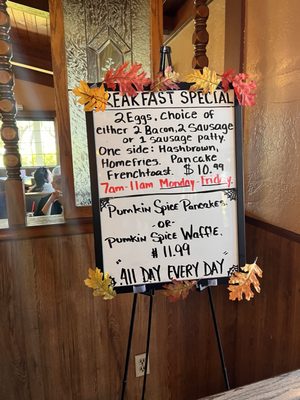 BREAKFAST SPECIAL
2 Eggs, Choice of
either 2 Bacon, 2 Sausage
or 1 sausage patty.
One side: Hashbrown,
Homefries. Pancake
Frenchtoast. $10.99
7am-11am Monday-Friday
Pumkin Spice Pancakes
-OR-
Pumkin Spice Waffle.
$11.99
ALL DAY EVERY DAY